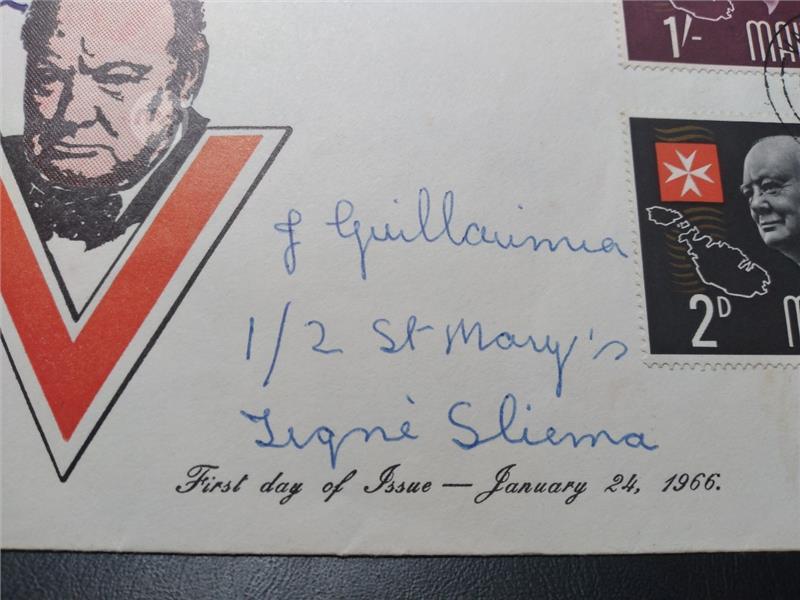 1/- MA
2D M
J Guillaumia
1/2 St Mary's
Tigné Sliema
First day of Issue — January 24, 1966.